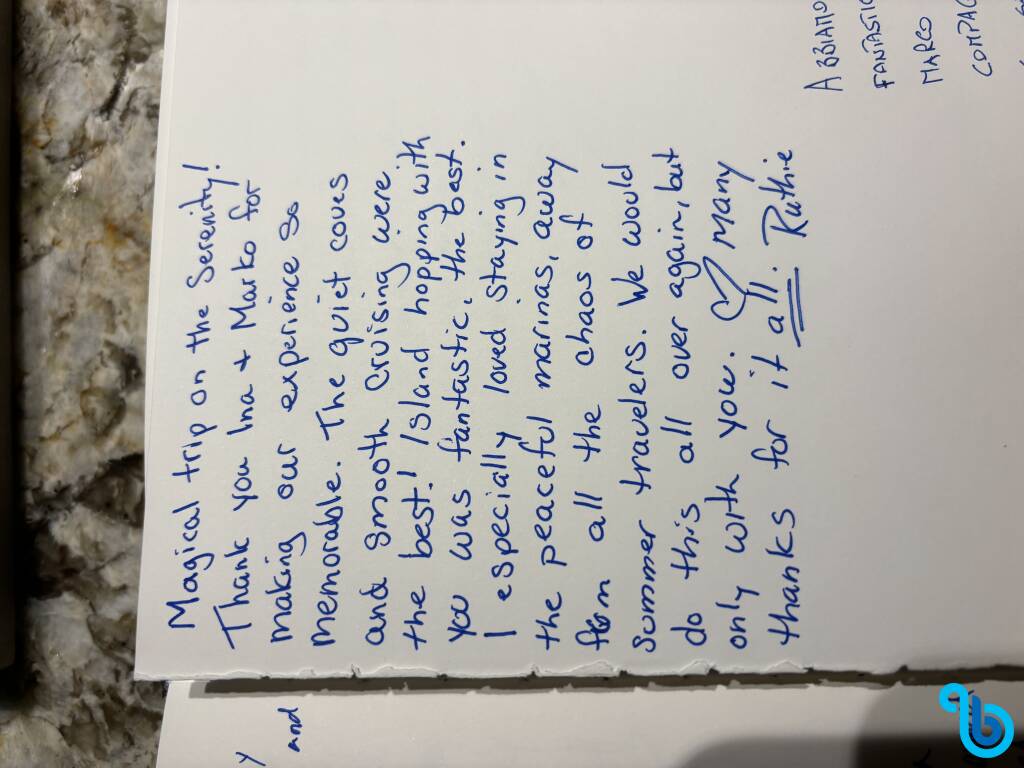 Magical trip on the Serenity!
Thank you Ina + Marko for
making our experience so
memorable. The quiet coves
and smooth cruising were
the best! Island hopping with
you was fantastic, the best.
I especially loved staying in
the peaceful marinas, away
from all the chaos of
summer travelers. We would
do this all over again, but
only with you. Many
thanks for it all. Ruthie
ABBIAMO
FANTASTIC
MARCO
COMPAG
y
and